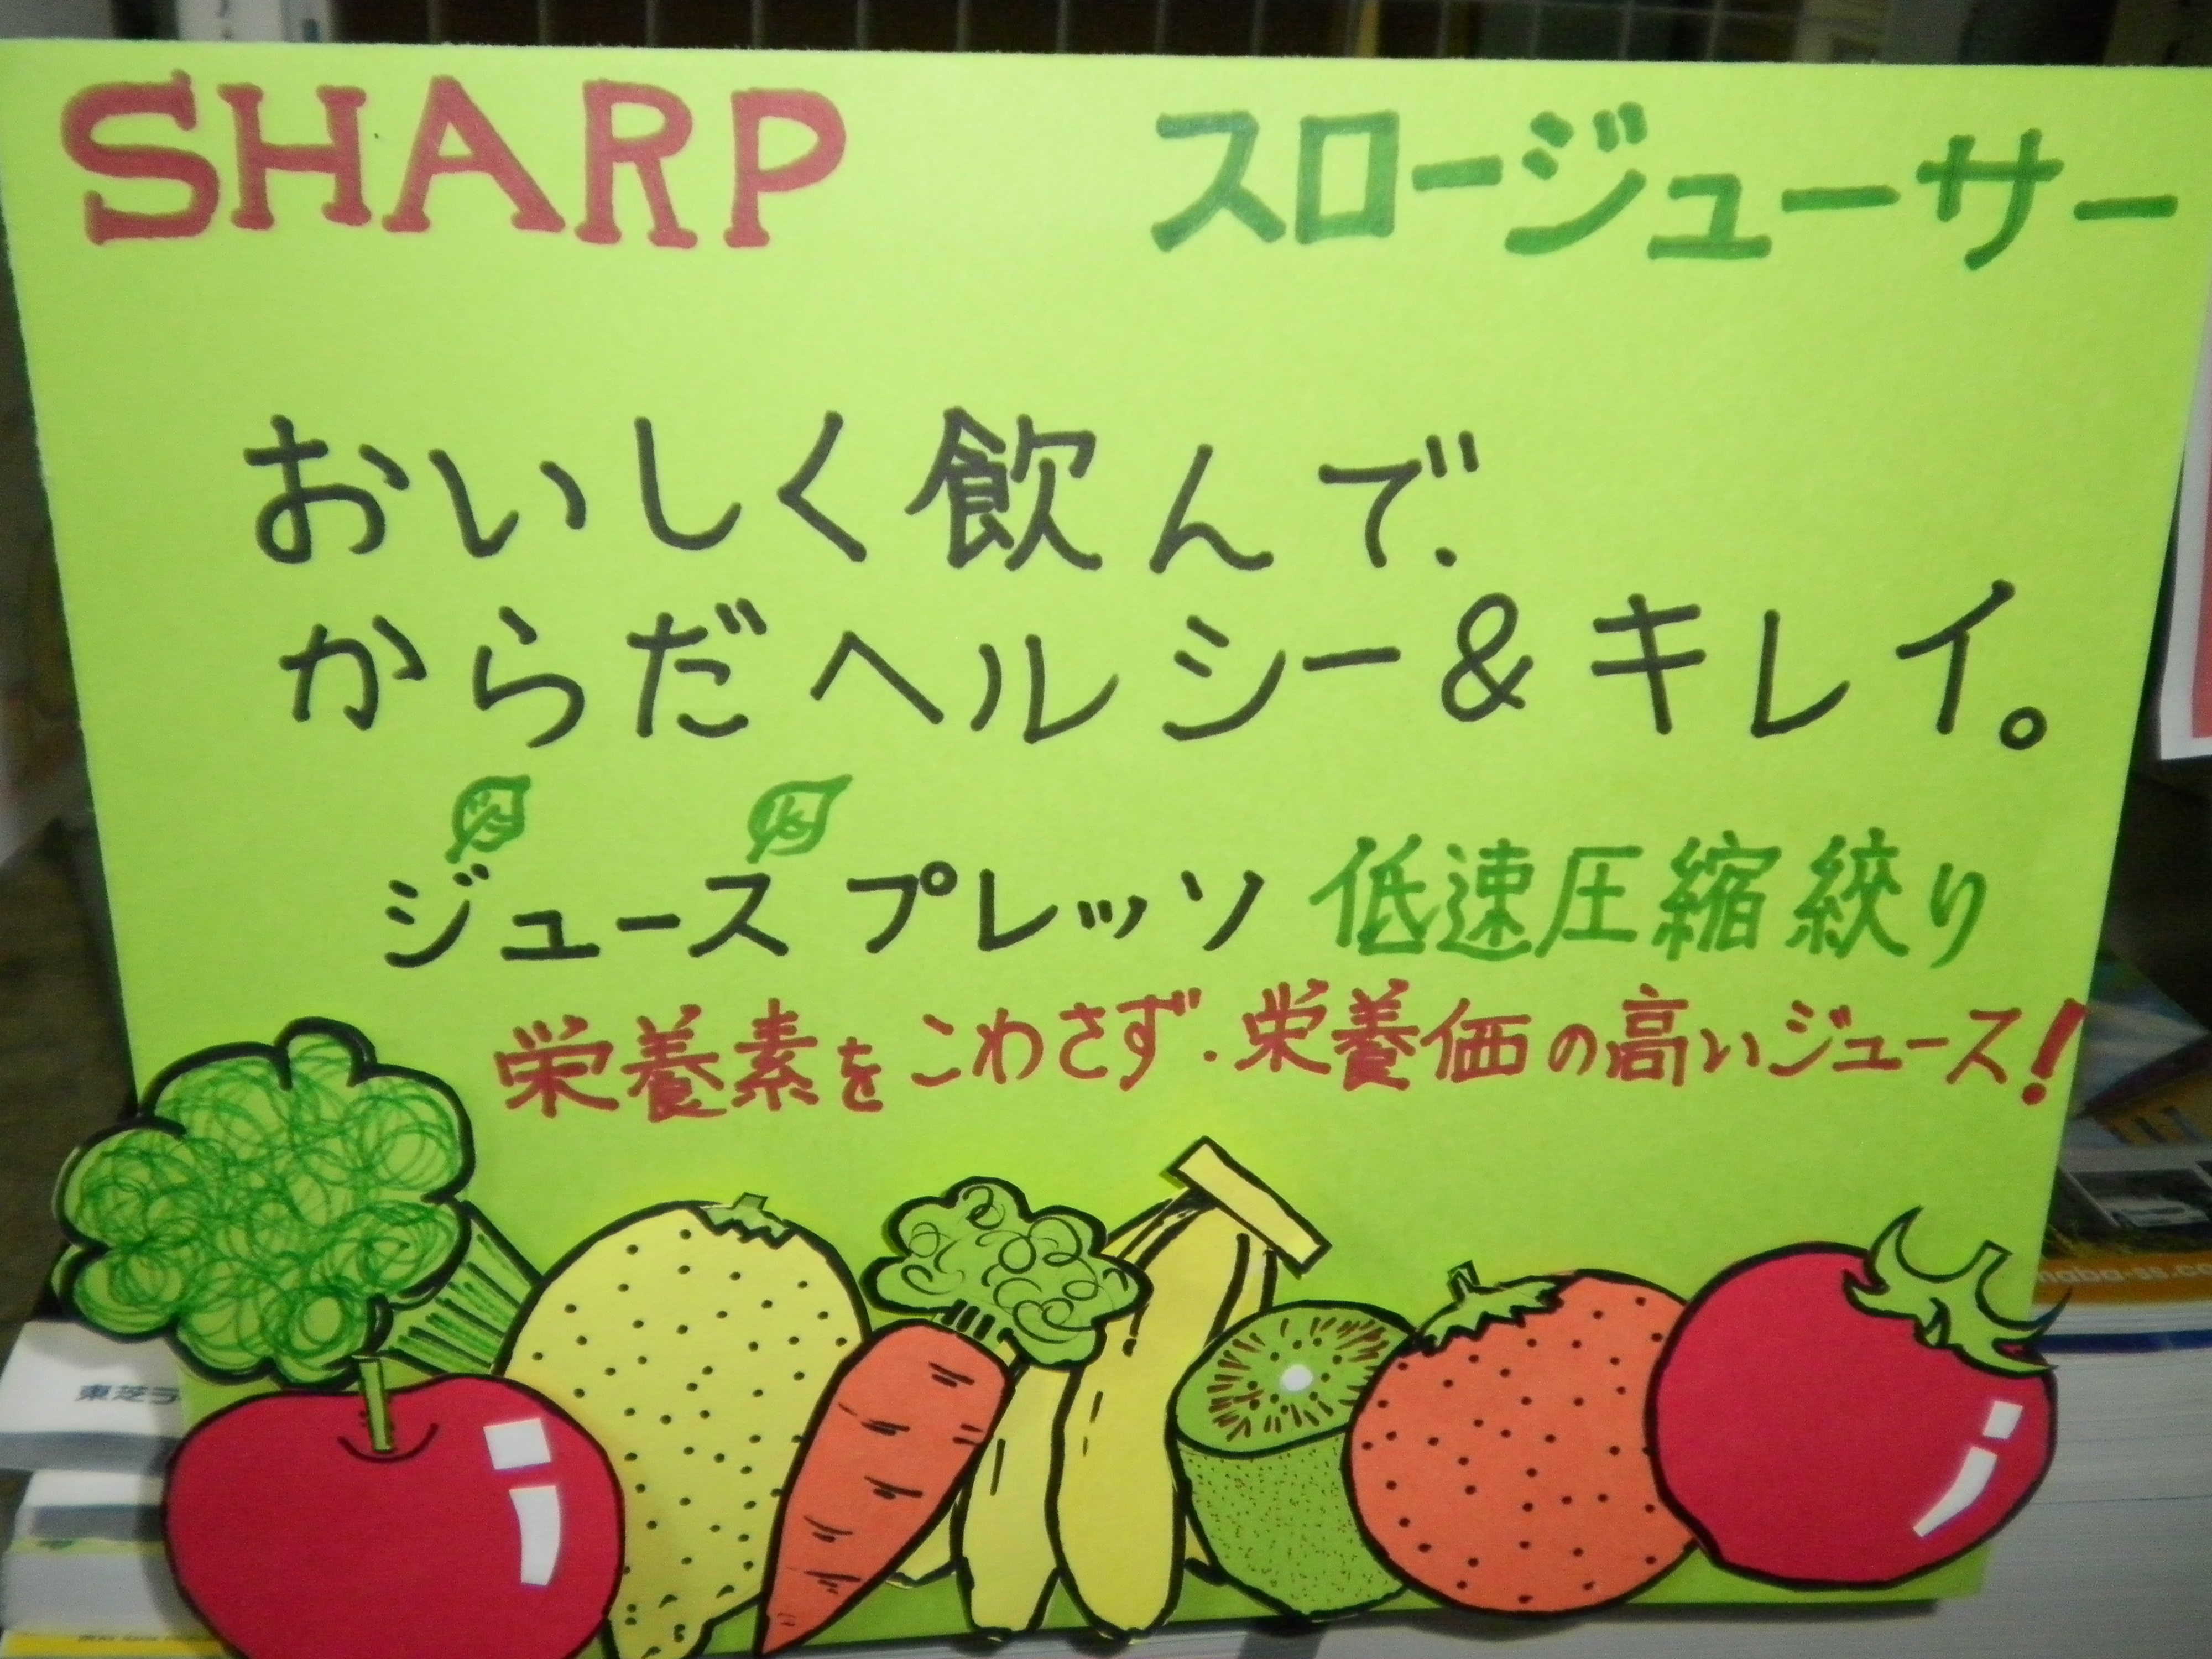 SHARP スロージューサー
おいしく飲んで、
からだヘルシー&キレイ。
ジュースプレッソ 低速圧縮絞り
栄養素をこわさず、栄養価の高いジュース!
東芝ラ